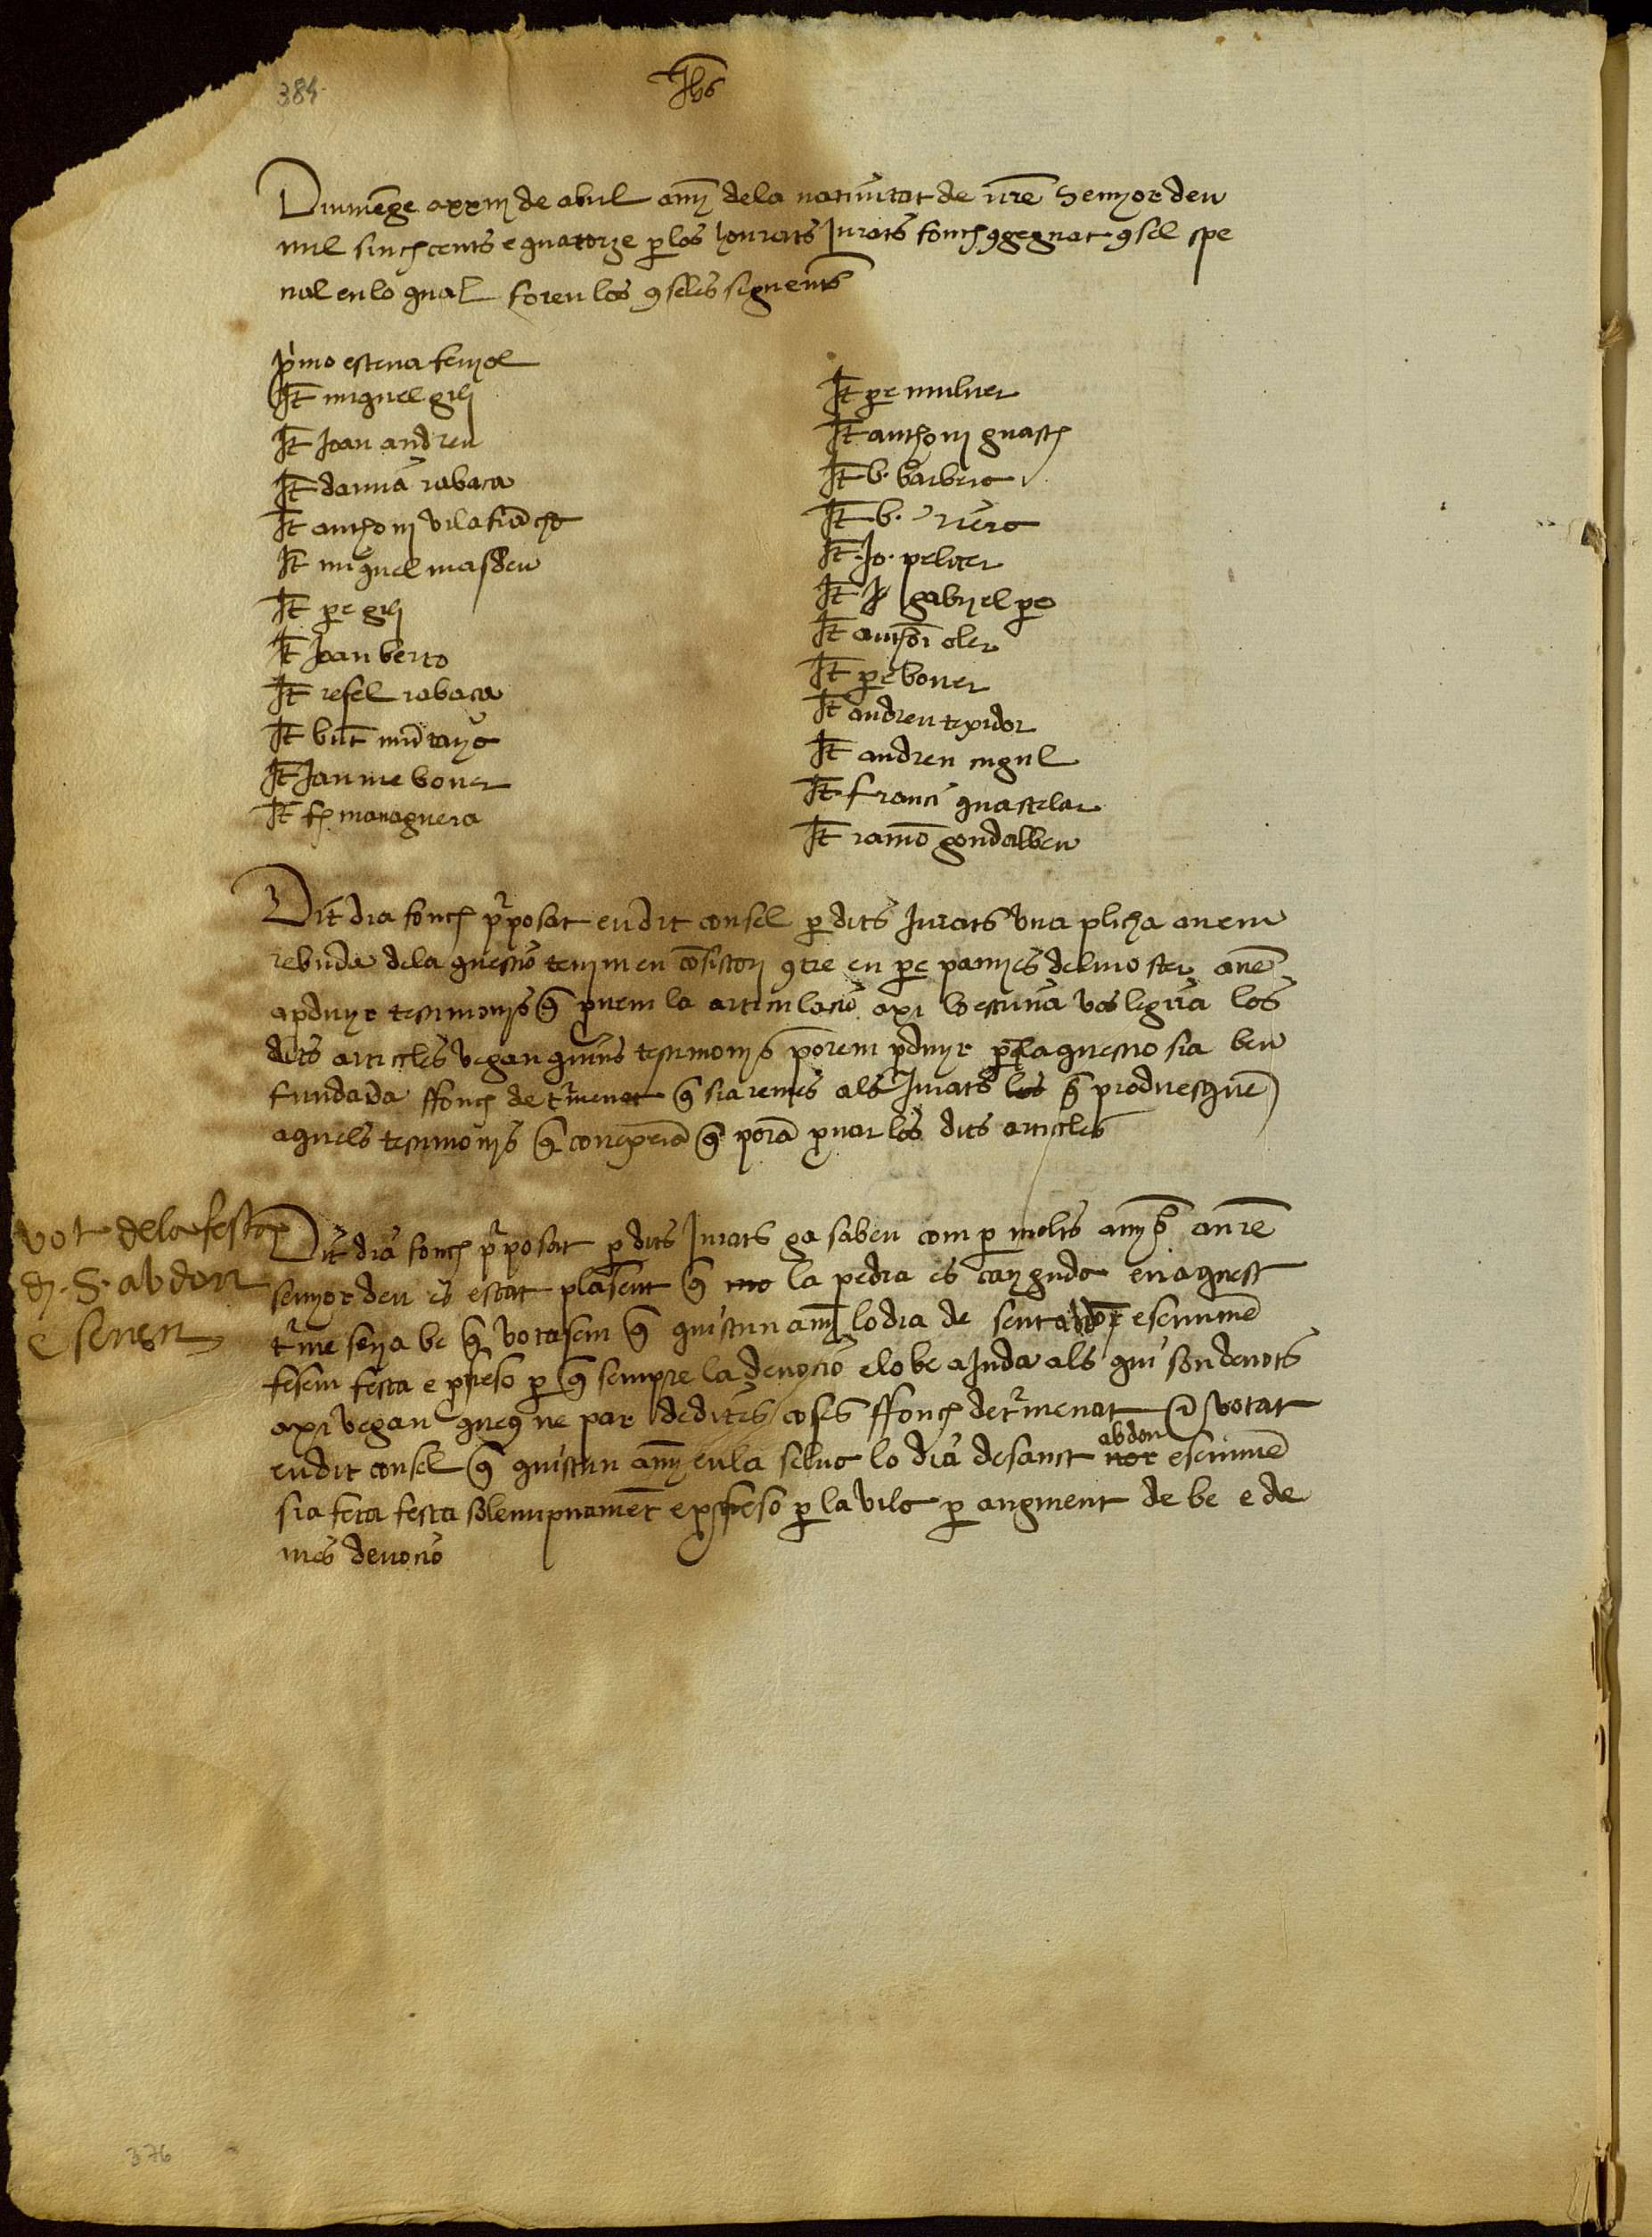 384
Jhs
Diumẽge a xxiij de abril anỹ dela natiuitat de nr̃e Senyor deu
mil sinch cents e quatorze per los honrats Jurats fonch 9gregat 9sel spe
sial en lo qual foren los 9selés seguents
p̃mo esteua
It̃ miquel gili
It̃ Joan andreu
It̃ damiã rabaca
It̃ anthoni vilafrãcha
It̃ miquel masdeu
It̃ pere gili
It̃ Joan berto
It̃ refel rabaca
It̃ bñt mũtanyo
It̃ Jaume bouer
It̃ managuera
It̃ pere muluer
It̃ anthoni guasch
It̃ b. barbera
It̃ b. riera
It̃ Jo. peliser
It̃ gabriel pere
It̃ anthoni oler
It̃ pere bouer
It̃ andreu texidor
It̃ andreu cugul
It̃ franci quastelar
It̃ ramõ gondalbeu
Dit dia fonch p̃posat en dit consel per dits Jurats vna plicha auem
rebuda dela questio tenim en cõsistori 9tre en pere pamies del moster auẽ
a produyr testimonis q̃ prouem la articulacio axi lo escriua vos legira los
dits articcles vegan quins testimonis porem produyr per q̃ la questio sia ben
fundada ffonch determenat q̃ sia remes als Jurats los q̃ produesquẽ
aquels testimonis q̃ conexerã q̃ porã prouar los dits articcles
vot dela festa
de S. abdon
e senen
Dit dia fonch p̃posat per dits Jurats ja saben com per molts anys a nr̃e
senyor deu es estat plasent q̃ no la pedra es cayguda en aquest
terme seria be q̃ votasem q̃ quiscun any lo dia de sent abdon e senimẽ
fesem festa e proseso per q̃ sempre la deuocio e lo be aJuda als qui son deuots
axi vegan queus ne par de dites coses ffonch determenat e votat
en dit consel q̃ quiscun any en la selua lo dia de sanct nor abdon e senimẽ
sia feta festa solempnamẽt e proseso per la vila per augment de be e de
mes deuocio
376